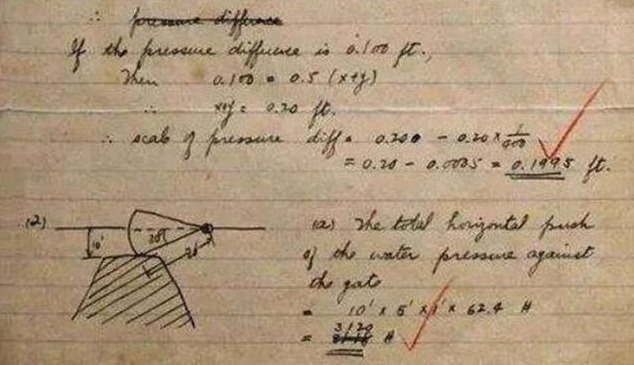 ∴ pressure difference
If the pressure difference is 0.100 ft.,
Then 0.100 = 0.5 (x+y)
∴ x+y = 0.20 ft.
∴ scale of pressure diff = 0.200 - 0.20 × 1/400
= 0.20 - 0.0005 = 0.1995 ft.
(2)
10'
(a) The total horizontal push
of the water pressure against
the gate
= 10' x 5' x 1' x 62.4 #
= 3120 #